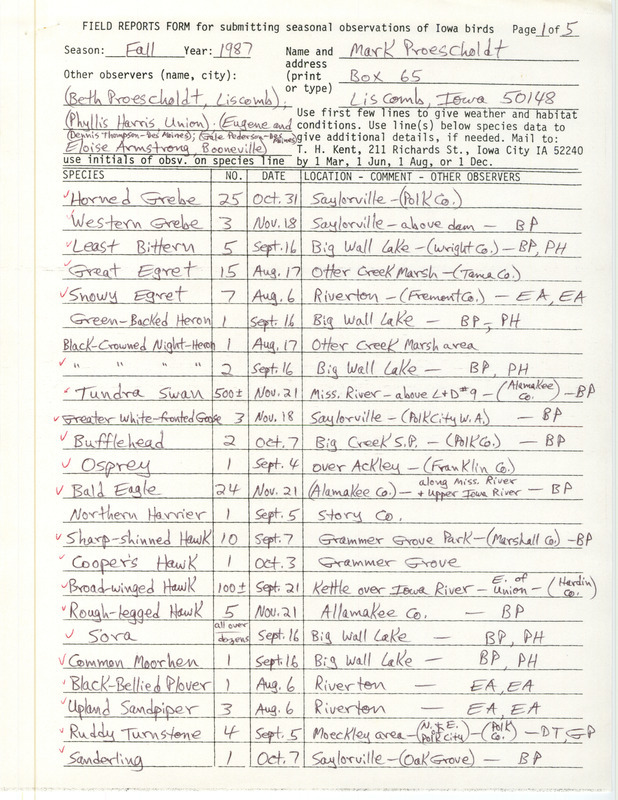 FIELD REPORTS FORM for submitting seasonal observations of Iowa birds Page 1 of 5
Season: Fall Year: 1987 Name and address (print or type) Mark Proescholdt
Box 65
Liscomb, Iowa 50148
Other observers (name, city):
(Beth Proescholdt, Liscomb);
(Phyllis Harris Union); (Eugene and
(Dennis Thompson-Des Moines); (Gale Pederson-Des Moines)
Eloise Armstrong Booneville)
use initials of obsv. on species line
Use first few lines to give weather and habitat
conditions. Use line(s) below species data to
give additional details, if needed. Mail to:
T. H. Kent, 211 Richards St., Iowa City IA 52240
by 1 Mar, 1 Jun, 1 Aug, or 1 Dec.
SPECIES NO. DATE LOCATION - COMMENT - OTHER OBSERVERS
✓Horned Grebe 25 Oct. 31 Saylorville - (Polk Co.)
✓Western Grebe 3 Nov. 18 Saylorville - above dam - BP
✓Least Bittern 5 Sept. 16 Big Wall Lake - (Wright Co.) - BP, PH
✓Great Egret 15 Aug. 17 Otter Creek Marsh - (Tama Co.)
✓Snowy Egret 7 Aug. 6 Riverton - (Fremont Co.) - EA, EA
Green-Backed Heron 1 Sept. 16 Big Wall Lake - BP, PH
Black-Crowned Night-Heron 1 Aug. 17 Otter Creek Marsh area
✓ " " " " 2 Sept. 16 Big Wall Lake - BP, PH
✓Tundra Swan 500± Nov. 21 Miss. River - above L+D #9 - (Alamakee Co.) - BP
✓Greater White-fronted Goose 3 Nov. 18 Saylorville - (Polk City W.A.) - BP
✓Bufflehead 2 Oct. 7 Big Creek S.P. - (Polk Co.) - BP
✓Osprey 1 Sept. 4 over Ackley - (Franklin Co.)
✓Bald Eagle 24 Nov. 21 (Alamakee Co.) - along Miss. River + Upper Iowa River - BP
Northern Harrier 1 Sept. 5 Story Co.
✓Sharp-shinned Hawk 10 Sept. 7 Grammer Grove Park - (Marshall Co.) - BP
✓Cooper's Hawk 1 Oct. 3 Grammer Grove
✓Broad-winged Hawk 100± Sept. 21 Kettle over Iowa River - E. of Union - (Hardin Co.)
✓Rough-legged Hawk 5 Nov. 21 Allamakee Co. - BP
✓Sora all over dozens Sept. 16 Big Wall Lake - BP, PH
✓Common Moorhen 1 Sept. 16 Big Wall Lake - BP, PH
✓Black-Bellied Plover 1 Aug. 6 Riverton - EA, EA
✓Upland Sandpiper 3 Aug. 6 Riverton - EA, EA
✓Ruddy Turnstone 4 Sept. 5 Moeckley area - (N. + E. Polk City) - (Polk Co.) - DT, GP
✓Sanderling 1 Oct. 7 Saylorville - (Oak Grove) - BP